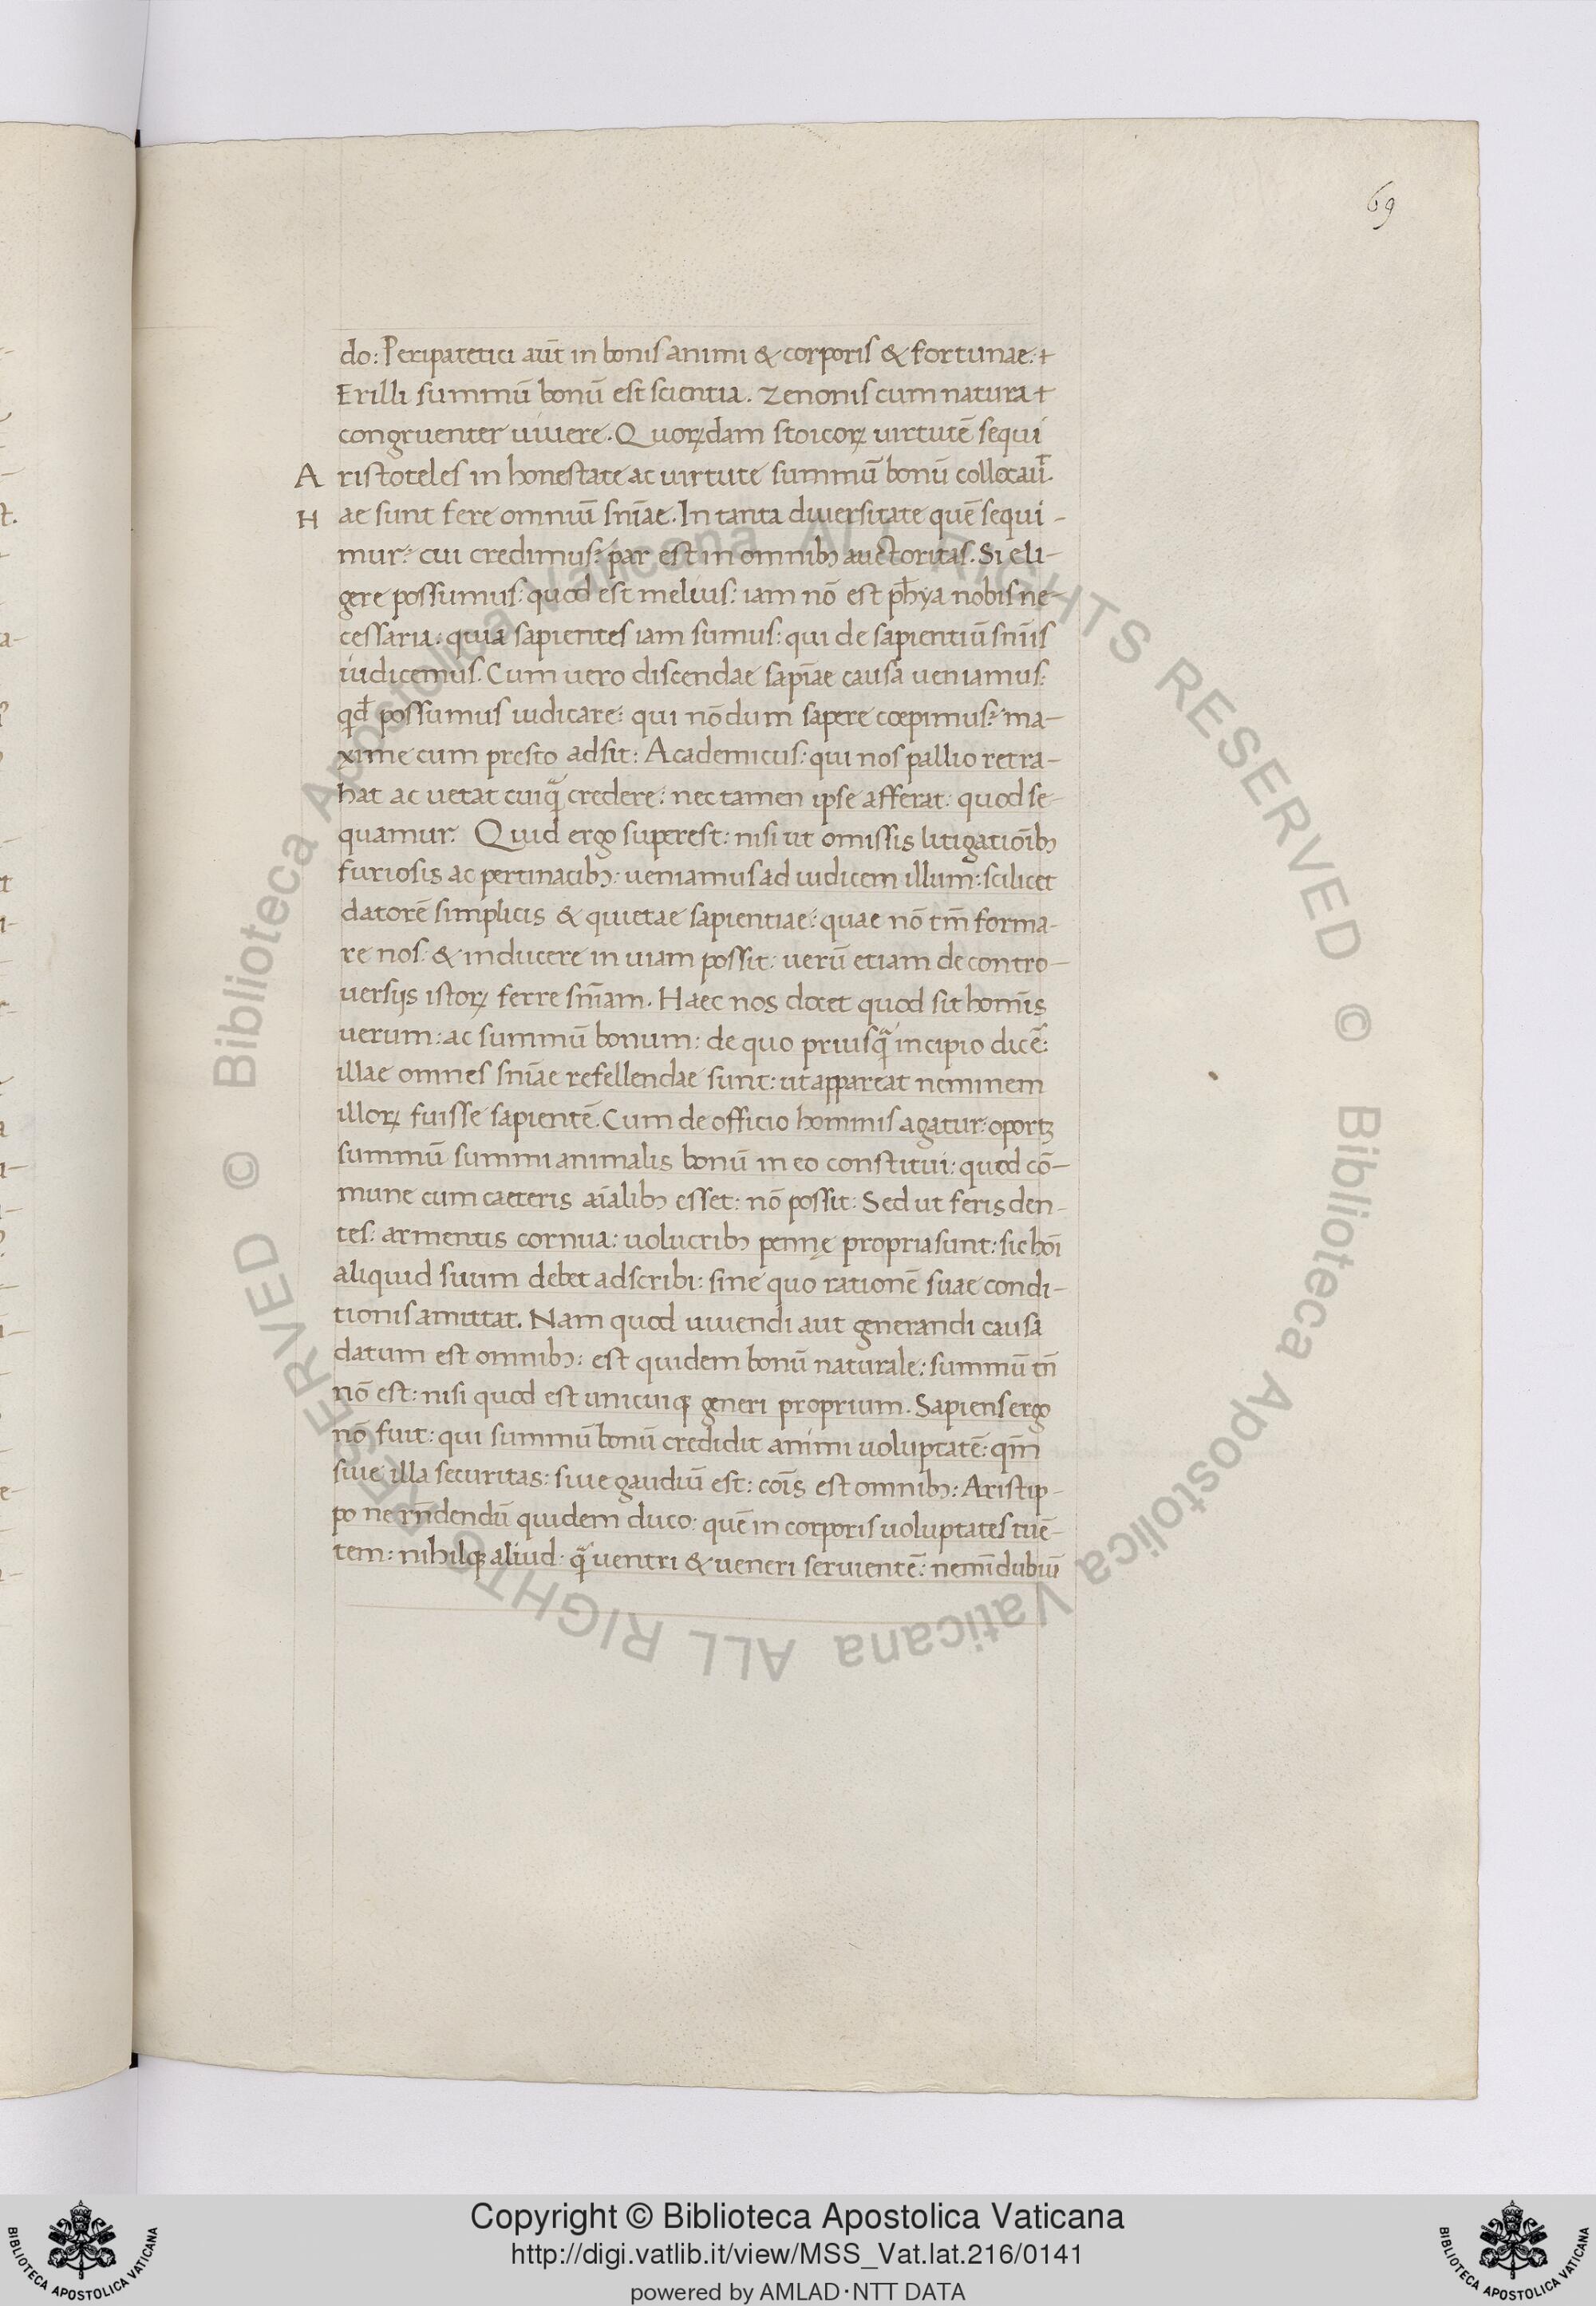 69
do: Peripatetici aūt in bonis animi & corporis & fortunae: +
Erilli summū bonū est scientia. Zenonis cum natura +
congruenter uiuere. Quorꝝdam stoicorꝝ uirtutē sequi
Aristoteles in honestate ac uirtute summū bonū collocauī̄.
Hae sunt fere omniū sn̄iae. In tanta diuersitate quē sequi-
mur? cui credimus? par est in omnibꝫ auctoritas. Si eli-
gere possumus: quod est melius: iam nō est ph̄ya nobis ne-
cessaria: quia sapientes iam sumus: qui de sapientiū sn̄iis
iudicemus. Cum uero discendae sapīae causa ueniamus:
qd̄ possumus iudicare: qui nōdum sapere cœpimus? ma-
xime cum presto adsit: Academicus: qui nos pallio retra-
hat ac uetat cuiqᷓ credere: nec tamen ipse afferat: quod se-
quamur. Quid ergo superest: nisi ut omissis litigatiōibꝫ
furiosis ac pertinacibꝫ: ueniamus ad iudicem illum: scilicet
datorē simplicis & quietae sapientiae: quae nō tm̄ forma-
re nos: & inducere in uiam possit: uerū etiam de contro-
uersijs istorꝝ ferre sn̄iam. Haec nos docet quod sit homīs
uerum: ac summū bonum: de quo priusqᷓ incipio dicē:
illae omnes sn̄iae refellendae sunt: ut appareat neminem
illorꝝ fuisse sapientē. Cum de officio hominis agatur: oportꝫ
summū summi animalis bonū in eo constitui: quod cō-
mune cum caeteris aīalibꝫ esset: nō possit: Sed ut feris den-
tes: armentis cornua: uolucribꝫ pennę propria sunt: sic hoī
aliquid suum debet adscribi: sine quo rationē suae condi-
tionis amittat. Nam quod uiuendi aut generandi causa
datum est omnibꝫ: est quidem bonū naturale: summū tn̄
nō est: nisi quod est unicuiqꝫ generi proprium. Sapiens ergo
nō fuit: qui summū bonū credidit animi uoluptatē: qm̄
siue illa securitas: siue gaudiū est: coīs est omnibꝫ: Aristip-
po ne rn̄dendū quidem duco: quē in corporis uoluptates ruē-
tem: nihilqꝫ aliud: qᷓ uentri & ueneri seruientē: nemīdubiū
© Biblioteca Apostolica Vaticana ALL RIGHTS RESERVED © Biblioteca Apostolica Vaticana ALL RIGHTS RESERVED
BIBLIOTECA APOSTOLICA VATICANA
Copyright © Biblioteca Apostolica Vaticana
http://digi.vatlib.it/view/MSS_Vat.lat.216/0141
powered by AMLAD·NTT DATA
BIBLIOTECA APOSTOLICA VATICANA